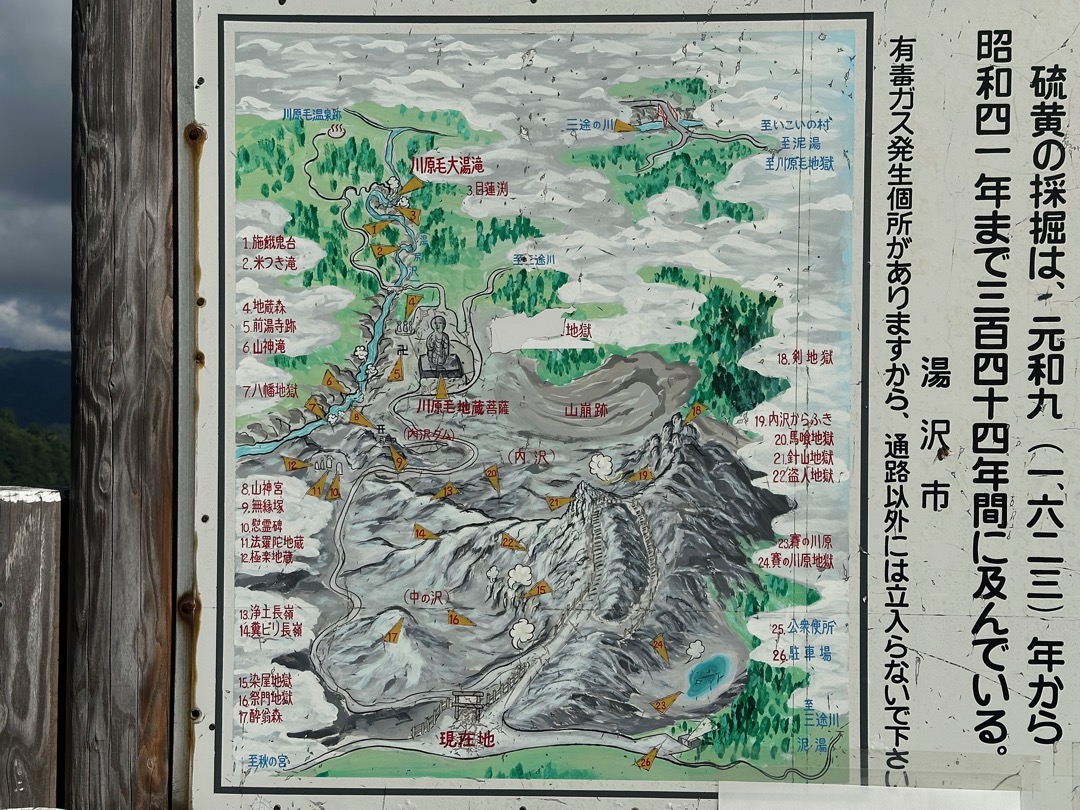 硫黄の採掘は、元和九（一、六二三）年から
昭和四一年まで三百四十四年間に及んでいる。
湯沢市
有毒ガス発生個所がありますから、通路以外には立入らないで下さい
川原毛温泉跡
三途の川
至いこいの村
至泥湯
至川原毛地獄
川原毛大湯滝
3.目蓮渕
3
1
2
1.施餓鬼台
2.米つき滝
至三途川
4.地蔵森
5.前湯寺跡
6.山神滝
4
地獄
卍
5
18.剣地獄
7.八幡地獄
6
川原毛地蔵菩薩
山崩跡
18
8
(内沢ダム)
19.内沢からふき
20.馬喰地獄
21.針山地獄
22.盗人地獄
(内沢)
12
9
20
19
8.山神宮
9.無縁塚
10.慰霊碑
11.法羅陀地蔵
12.極楽地蔵
11
10
13
21
14
22
23.賽の川原
24.賽の川原地獄
15
(中の沢)
16
13.浄土長嶺
14.糞ビリ長嶺
17
24
25.公衆便所
26.駐車場
15.染屋地獄
16.祭門地獄
17.酔翁森
23
至三途川
泥湯
現在地
至秋の宮
26